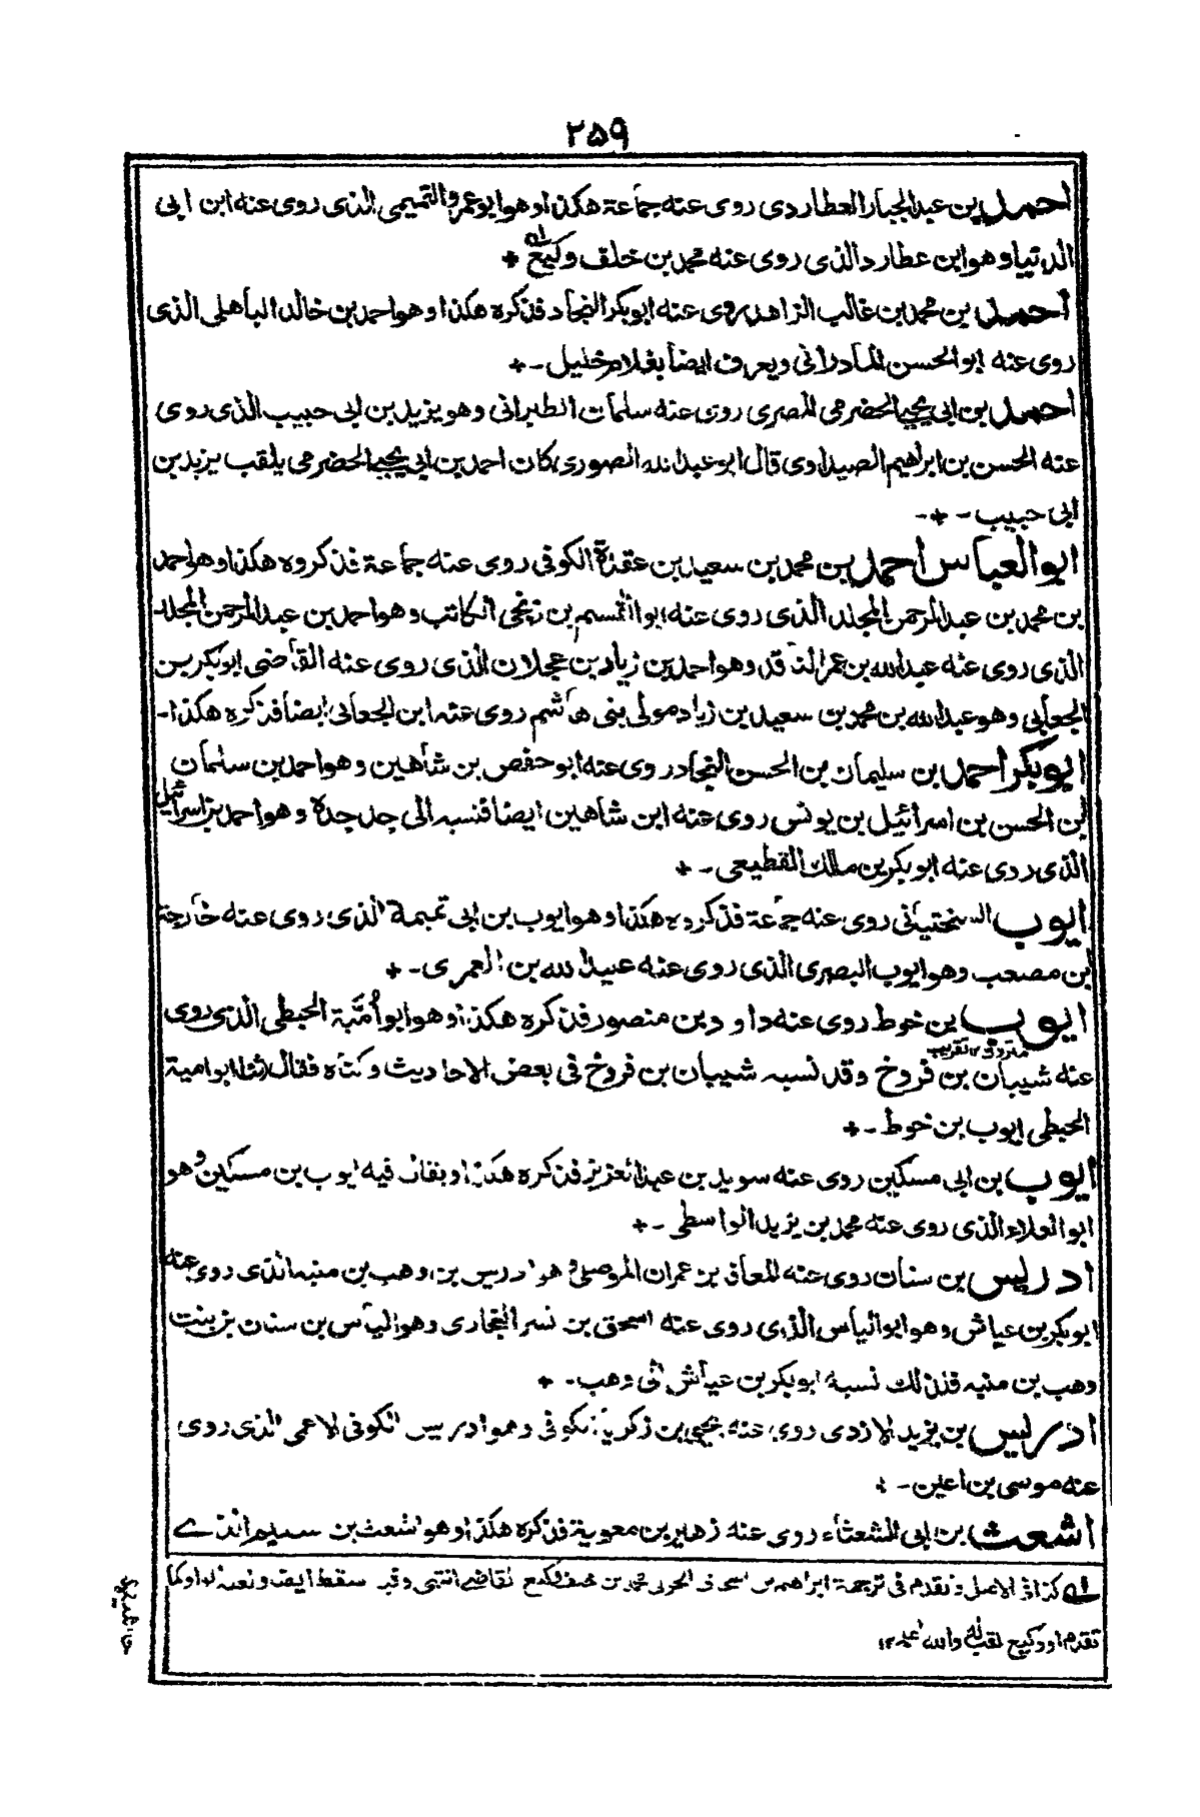 ٢٥٩
احمد بن عبد الجبار العطاردي روى عنه جماعة هكذا وهو ابو عمرو التميمي الذي روى عنه ابن ابي
الدنيا وهو ابن عطارد الذي روى عنه محمد بن خلف وكيع +
احمد بن محمد بن غالب الزاهد روى عنه ابو بكر النجاد فذكره هكذا وهو احمد بن خالد الباهلي الذي
روى عنه ابو الحسن المادراني ويعرف ايضا بغلام خليل - +
احمد بن ابي يحيى الحضرمي المصري روى عنه سلمان الطبراني وهو يزيد بن ابي حبيب الذي روى
عنه الحسن بن ابراهيم الصيداوي قال ابو عبد الله الصوري كان احمد بن ابي يحيى الحضرمي يلقب يزيد بن
ابي حبيب - + -
ابو العباس احمد بن محمد بن سعيد بن عقدة الكوفي روى عنه جماعة فذكروه هكذا وهو احمد
بن محمد بن عبد الرحمن المجلد الذي روى عنه ابو القسيم بن زنجي الكاتب وهو احمد بن عبد الرحمن المجلد
الذي روى عنه عبد الله بن عمر الناقد وهو احمد بن زياد بن عجلان الذي روى عنه القاضي ابو بكر بن
الجعابي وهو عبد الله بن محمد بن سعيد بن زياد مولى بني هاشم روى عنه ابن الجعابي ايضا فذكره هكذا -
ابو بكر احمد بن سليمان بن الحسن النجاد روى عنه ابو حفص بن شاهين وهو احمد بن سلمان
بن الحسن بن اسرائيل بن يونس روى عنه ابن شاهين ايضا فنسبه الى جد جده وهو احمد بن اسرائيل
الذي روى عنه ابو بكر بن مالك القطيعي - +
ايوب السختياني روى عنه جماعة فذكروه هكذا وهو ايوب بن ابي تميمة الذي روى عنه خارجة
ابن مصعب وهو ايوب البصري الذي روى عنه عبيد الله بن العمري - +
ايوب بن خوط روى عنه داود بن منصور فذكره هكذا وهو ابو أميّة الحبطي الذي روى
متروك ١٢ تقريب
عنه شيبان بن فروخ وقد نسبه شيبان بن فروخ في بعض الاحاديث وكناه فقال ثنا ابو امية
الحبطي ايوب بن خوط - +
ايوب بن ابي مسكين روى عنه سويد بن عبد العزيز فذكره هكذا ويقال فيه ايوب بن مسكين وهو
ابو العلاء الذي روى عنه محمد بن يزيد الواسطي - +
ادريس بن سنان روى عنه المعافى بن عمران الموصلي وهو ادريس بن وهب بن منبه الذي روى عنه
ابو بكر بن عياش وهو ابو الياس الذي روى عنه اسحق بن نسر البخاري وهو الياس بن سنان بن بنت
وهب بن منبه فلذلك نسبه ابو بكر بن عياش الى وهب - +
ادريس بن يزيد الازدي روى عنه يحيى بن زكريا الكوفي وهو ادريس الكوفي الاعمى الذي روى
عنه موسى بن اعين - +
اشعث بن ابي الشعثاء روى عنه زهير بن معوية فذكره هكذا وهو اشعث بن سليم الذي
كذا في الاصل وتقدم في ترجمة ابراهيم بن اسحق الحربي محمد بن خلف وكيع القاضي انتهى وقد سقط
تقدم او وكيع لقب له والله اعلم ١٢